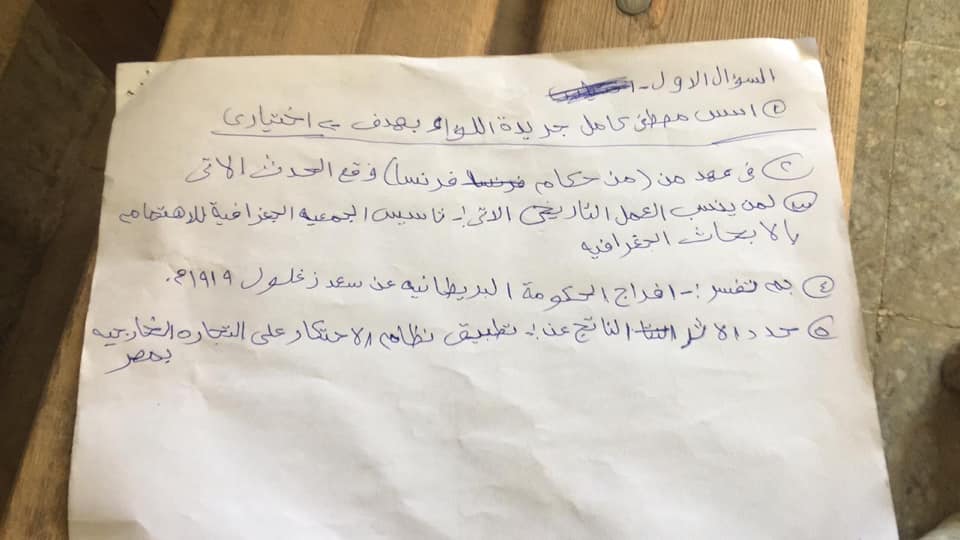 السؤال الاول -
① اسس مصطفى كامل جريدة اللواء بهدف - اختيارى
② فى عهد من (من حكام فرنسا) وقع الحدث الاتى
③ لمن ينسب العمل التاريخى الاتى :- تاسيس الجمعيه الجغرافية للاهتمام
بالابحاث الجغرافيه
④ بم تفسر :- افراج الحكومة البريطانيه عن سعد زغلول ١٩١٩م.
⑤ حدد الاثر الناتج عن :- تطبيق نظام الاحتكار على التجاره الخارجيه
بمصر